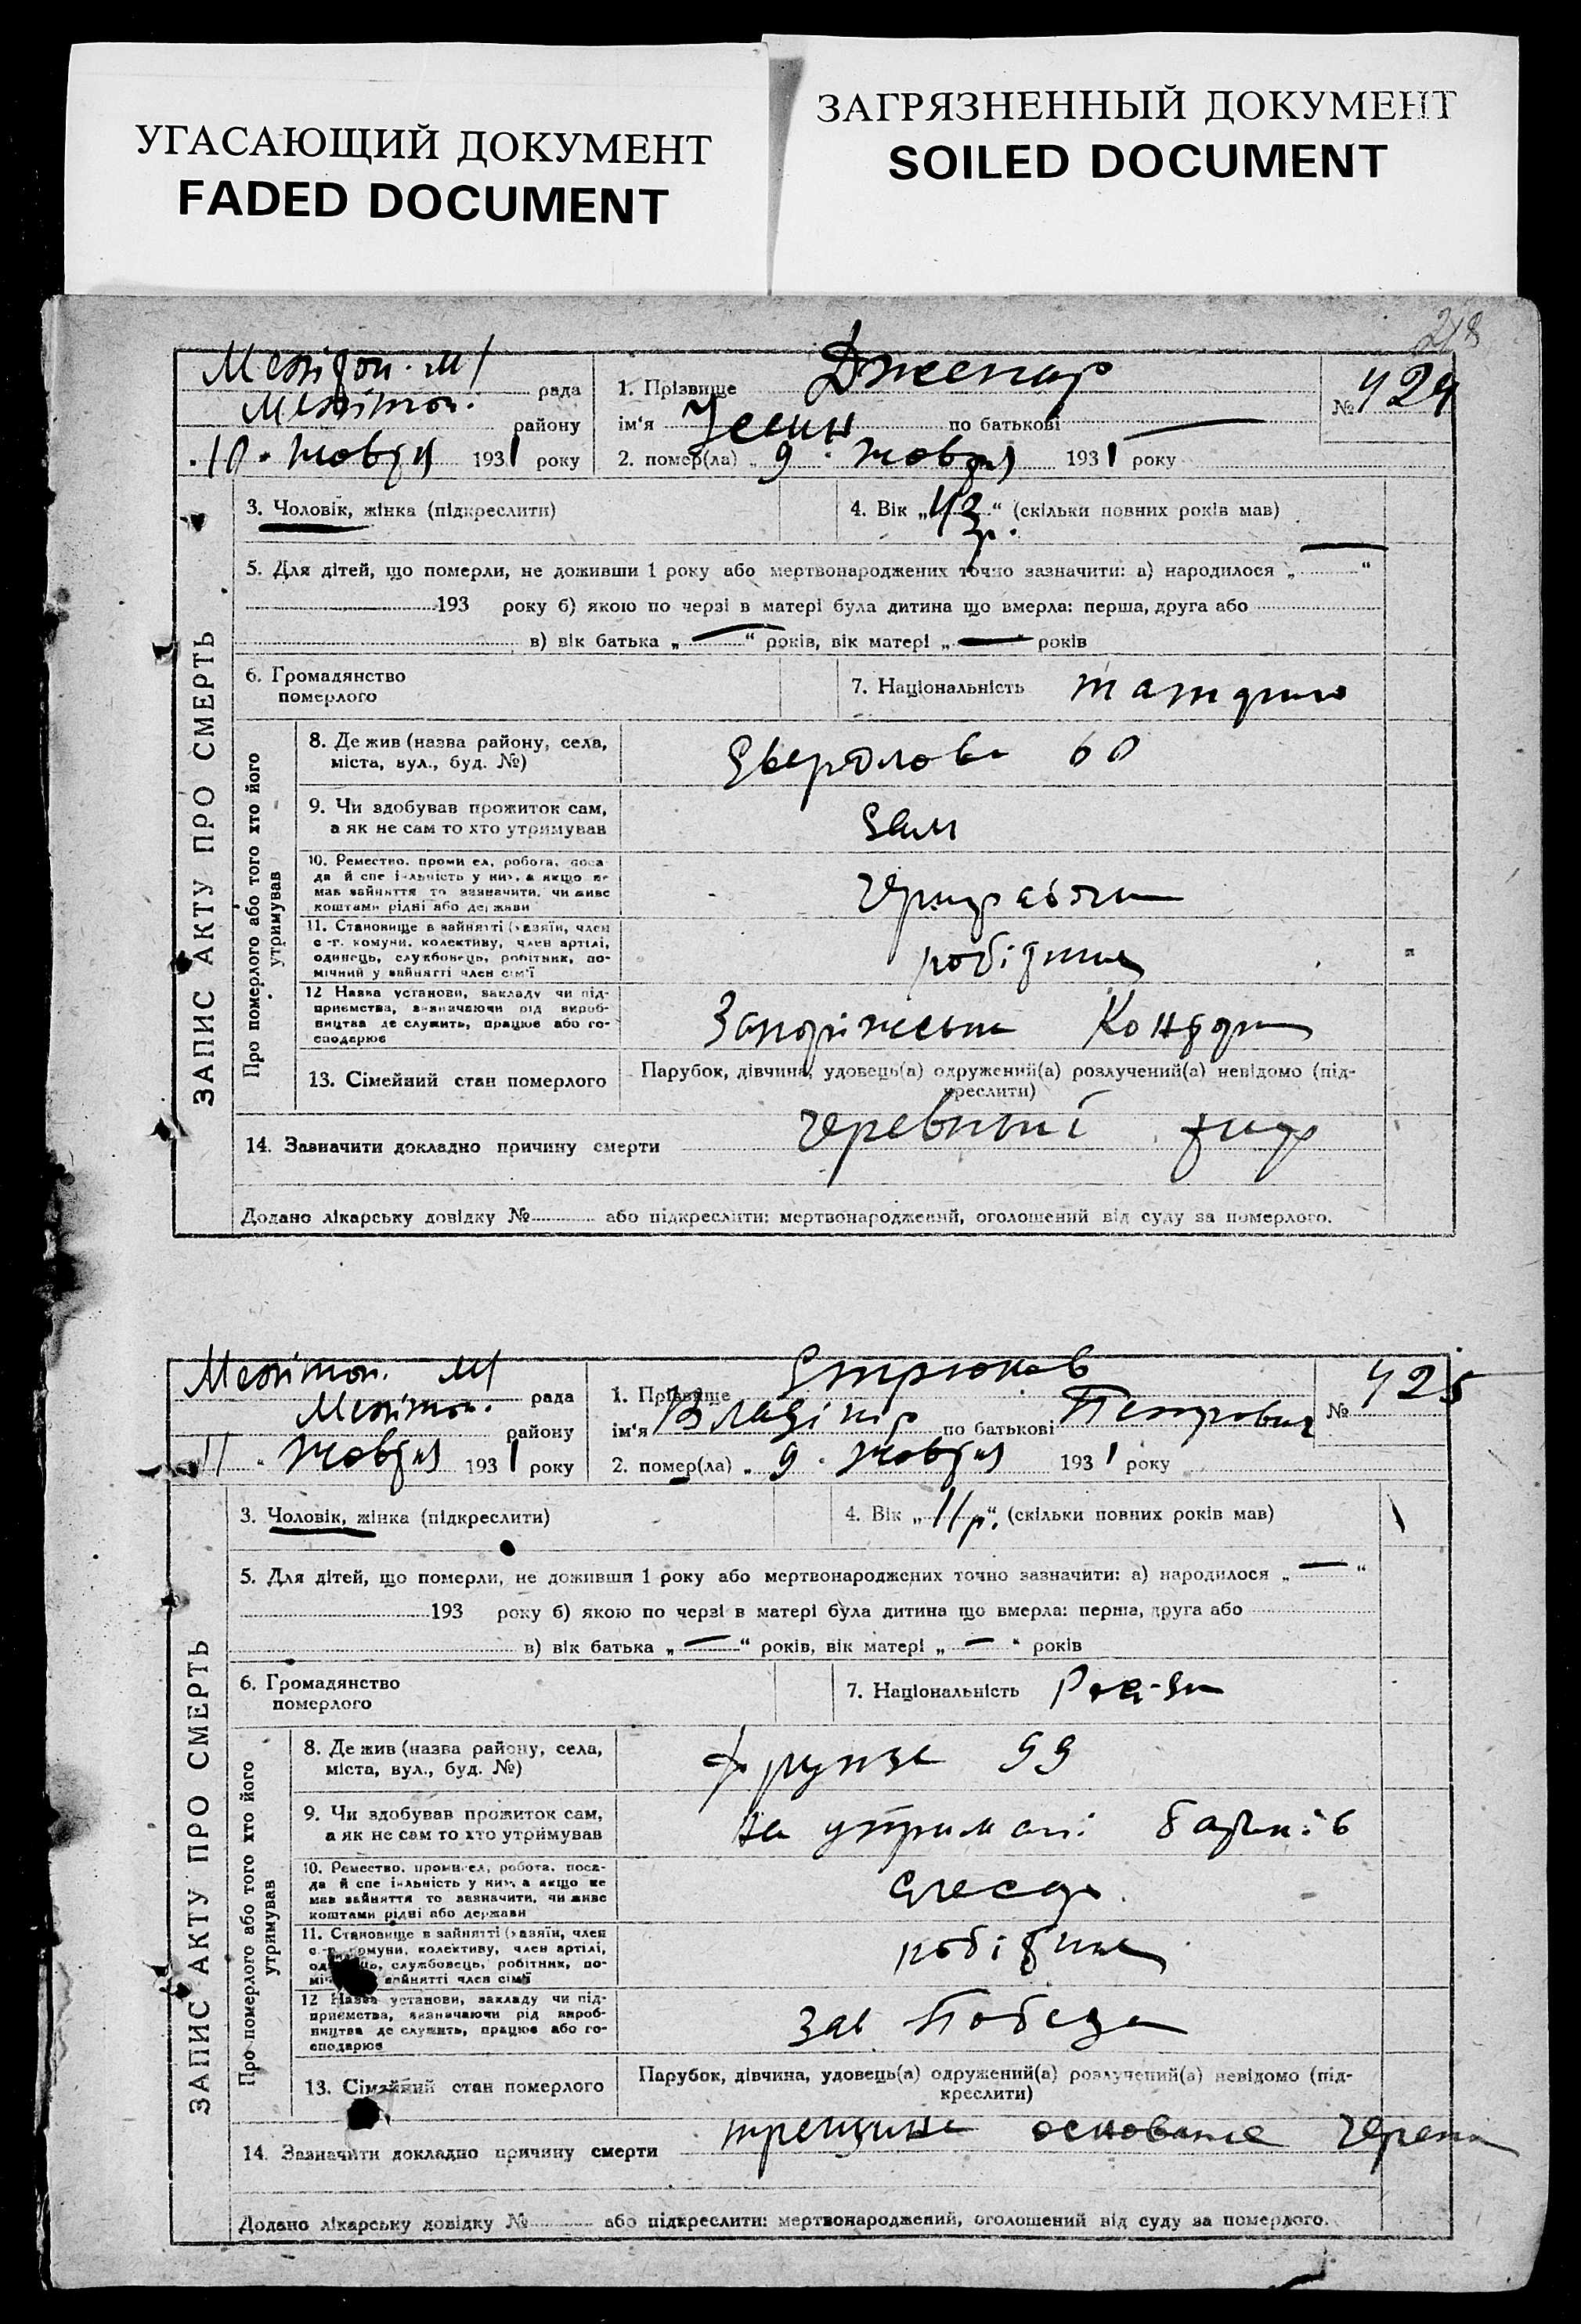 УГАСАЮЩИЙ ДОКУМЕНТ
FADED DOCUMENT
ЗАГРЯЗНЕННЫЙ ДОКУМЕНТ
SOILED DOCUMENT
218
ЗАПИС АКТУ ПРО СМЕРТЬ
рада
району
10 жовтня 1931 року
1. Прізвище Джепар
ім'я по батькові —
№ 424
2. помер(ла) „9 жовтня 1931 року
3. Чоловік, жінка (підкреслити)
4. Вік „43 р.“ (скільки повних років мав)
5. Для дітей, що померли, не доживши 1 року або мертвонароджених точно зазначити: а) народилося „ — “
193 року б) якою по черзі в матері була дитина що вмерла: перша, друга або
в) вік батька „ — “ років, вік матері „ — “ років
6. Громадянство
померлого
7. Національність татарин
Про померлого або того хто його
утримував
8. Де жив (назва району, села,
міста, вул., буд. №)
Свердлова 60
9. Чи здобував прожиток сам,
а як не сам то хто утримував
Сам
10. Ремество, промисел, робота, поса-
да й спеціяльність у них, а якщо не
мав зайняття то зазначити, чи живе
коштами рідні або держави
Чорнороб
11. Становище в зайнятті (хазяїн, член
с.-г. комуни, колективу, член артілі,
одинець, службовець, робітник, по-
мічний у зайнятті член сім'ї
робітник
12 Назва установи, закладу чи під-
приємства, зазначаючи рід вироб-
ництва де служить, працює або го-
сподарює
13. Сімейний стан померлого
Парубок, дівчина, удовець(а) одружений(а) розлучений(а) невідомо (під-
креслити)
14. Зазначити докладно причину смерти черевний тиф
Додано лікарську довідку № або підкреслити: мертвонароджений, оголошений від суду за померлого.
ЗАПИС АКТУ ПРО СМЕРТЬ
Мелітоп. м/ рада
Мелітоп. району
11 жовтня 1931 року
1. Прізвище Стрюков
ім'я Владімір по батькові Петрович
№ 425
2. помер(ла) „9 жовтня 1931 року
3. Чоловік, жінка (підкреслити)
4. Вік „11 р.“ (скільки повних років мав)
5. Для дітей, що померли, не доживши 1 року або мертвонароджених точно зазначити: а) народилося „ — “
193 року б) якою по черзі в матері була дитина що вмерла: перша, друга або
в) вік батька „ — “ років, вік матері „ — “ років
6. Громадянство
померлого
7. Національність
Про померлого або того хто його
утримував
8. Де жив (назва району, села,
міста, вул., буд. №)
Фрунзе
9. Чи здобував прожиток сам,
а як не сам то хто утримував
на утримані батьків
10. Ремество, промисел, робота, поса-
да й спеціяльність у них, а якщо не
мав зайняття то зазначити, чи живе
коштами рідні або держави
слесар
11. Становище в зайнятті (хазяїн, член
с.-г. комуни, колективу, член артілі,
одинець, службовець, робітник, по-
мічний у зайнятті член сім'ї
робітник
12 Назва установи, закладу чи під-
приємства, зазначаючи рід вироб-
ництва де служить, працює або го-
сподарює
Зав Победа
13. Сімейний стан померлого
Парубок, дівчина, удовець(а) одружений(а) розлучений(а) невідомо (під-
креслити)
14. Зазначити докладно причину смерти трещина основание черепа
Додано лікарську довідку № або підкреслити: мертвонароджений, оголошений від суду за померлого.